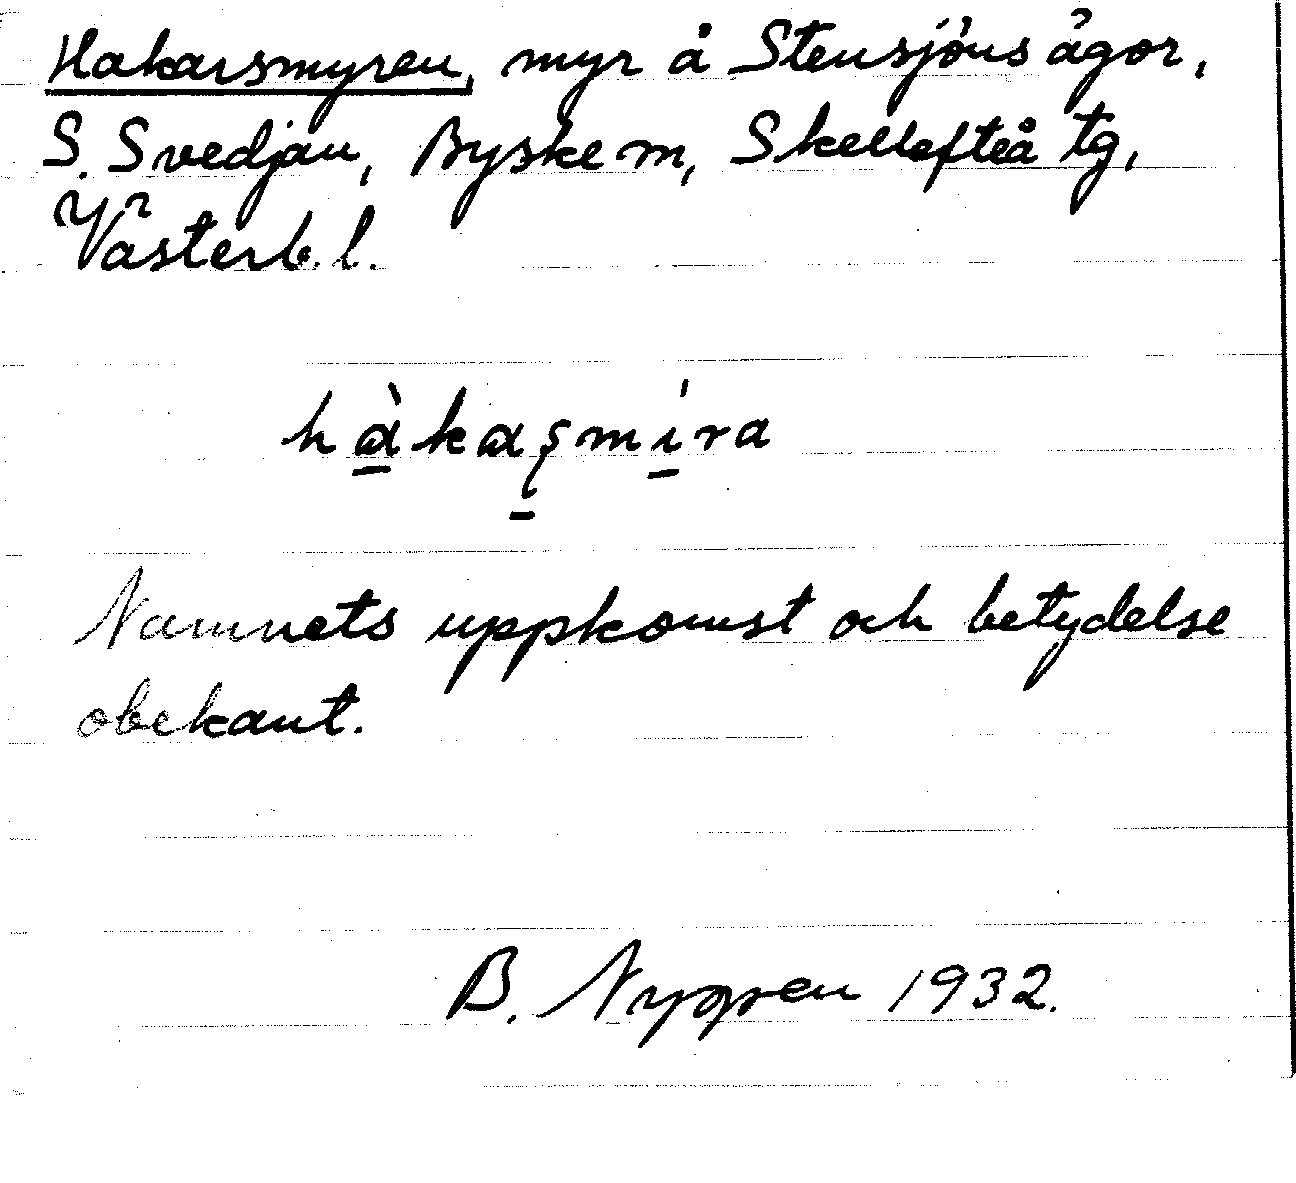 Hakarsmyren, myr å Stensjöns ägor,
S. Svedjan, Byske sn, Skellefteå tg,
Västerb. l.
hàkaʂmíra
Namnets uppkomst och betydelse
obekant.
B. Nygren 1932.